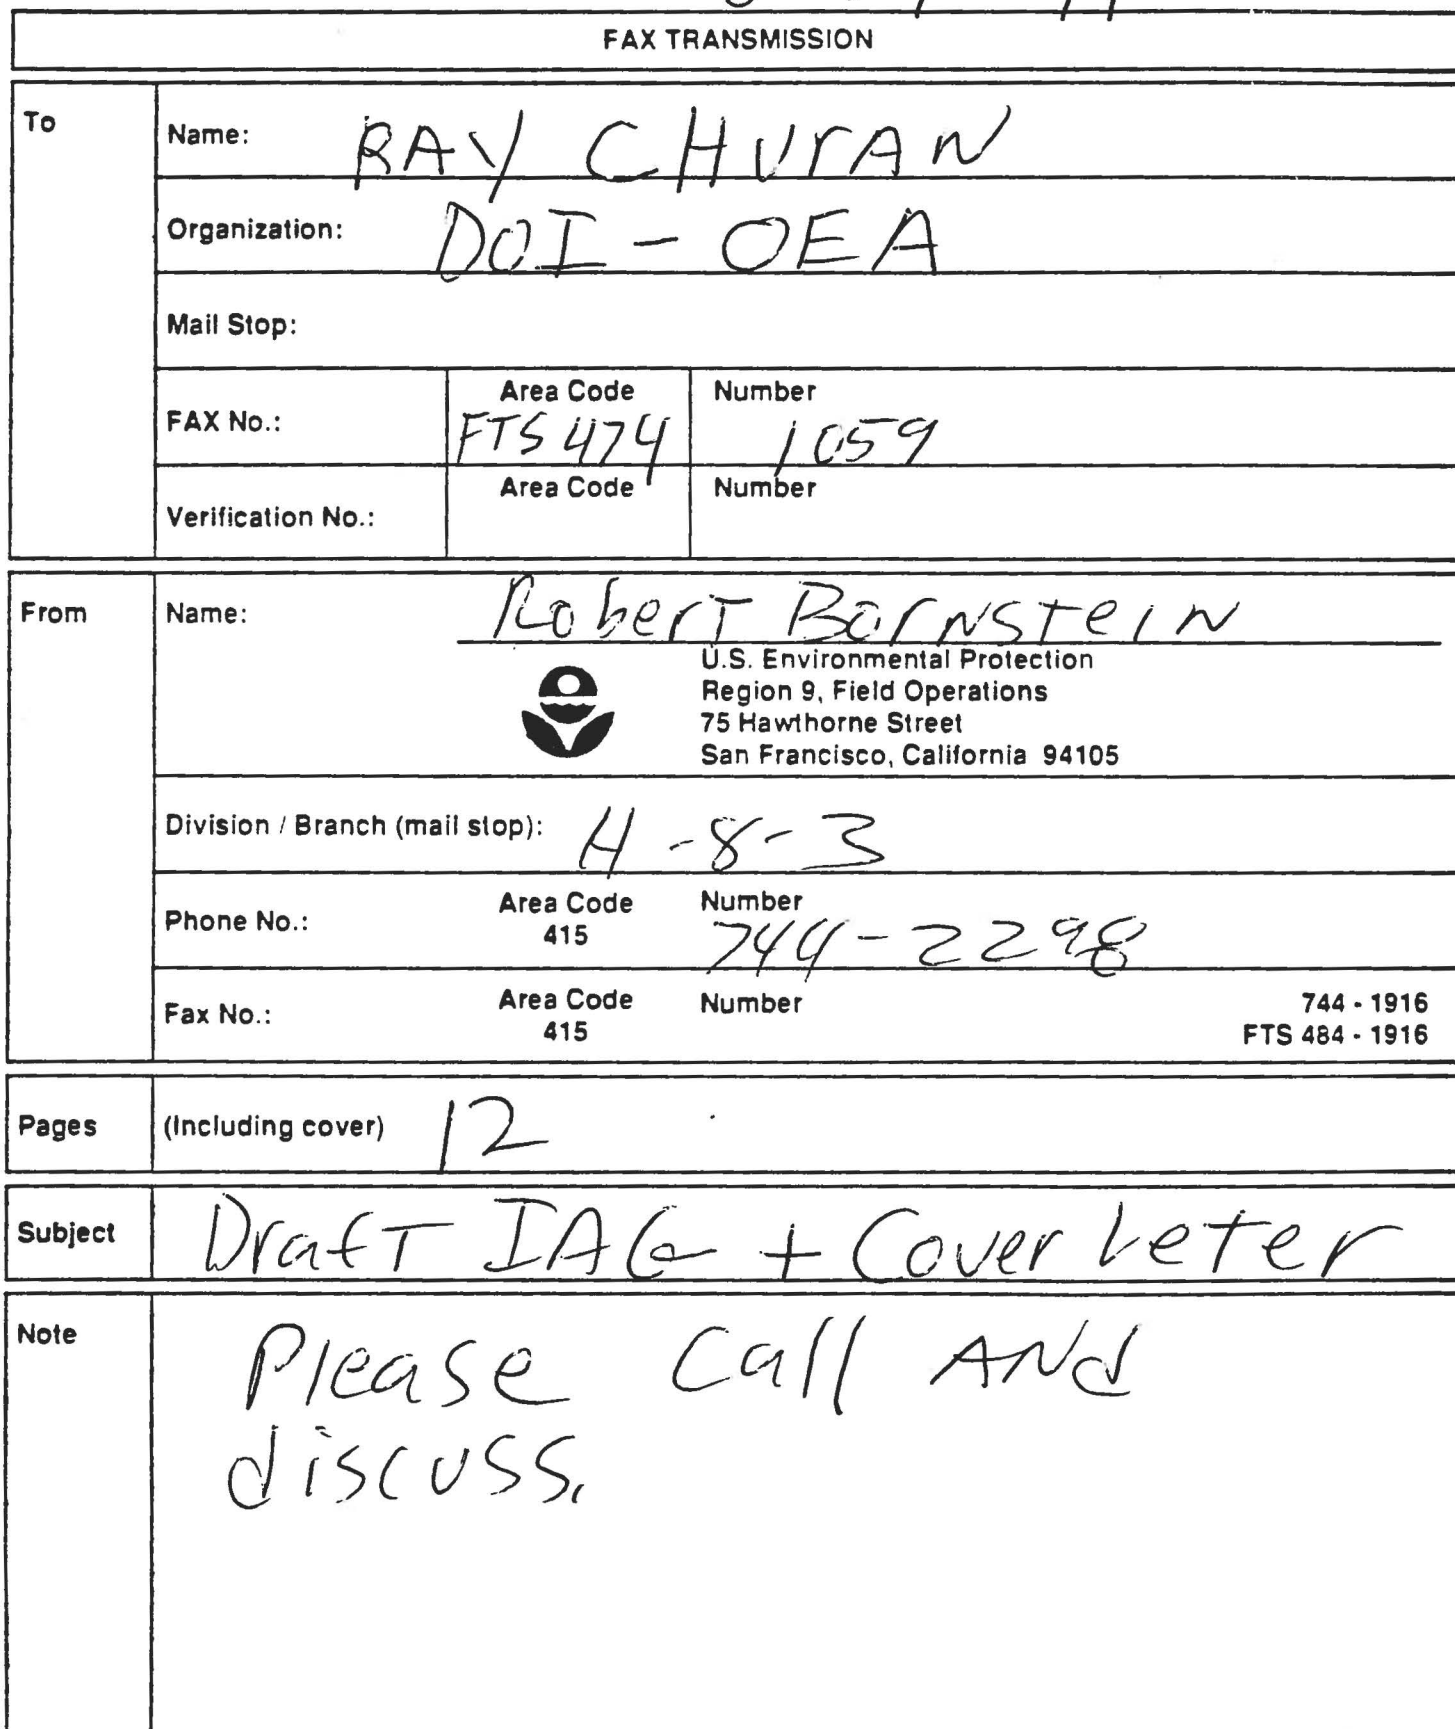 FAX TRANSMISSION
To
Name: RAY CHURAN
Organization: DOI - OEA
Mail Stop:
FAX No.: Area Code FTS 474 Number 1059
Verification No.: Area Code Number
From
Name: Robert Bornstein
U.S. Environmental Protection
Region 9, Field Operations
75 Hawthorne Street
San Francisco, California 94105
Division / Branch (mail stop): H-8-3
Phone No.: Area Code 415 Number 744-2298
Fax No.: Area Code 415 Number 744 - 1916
FTS 484 - 1916
Pages (Including cover) 12
Subject Draft IAG + Cover Leter
Note
Please Call AND
discuss.